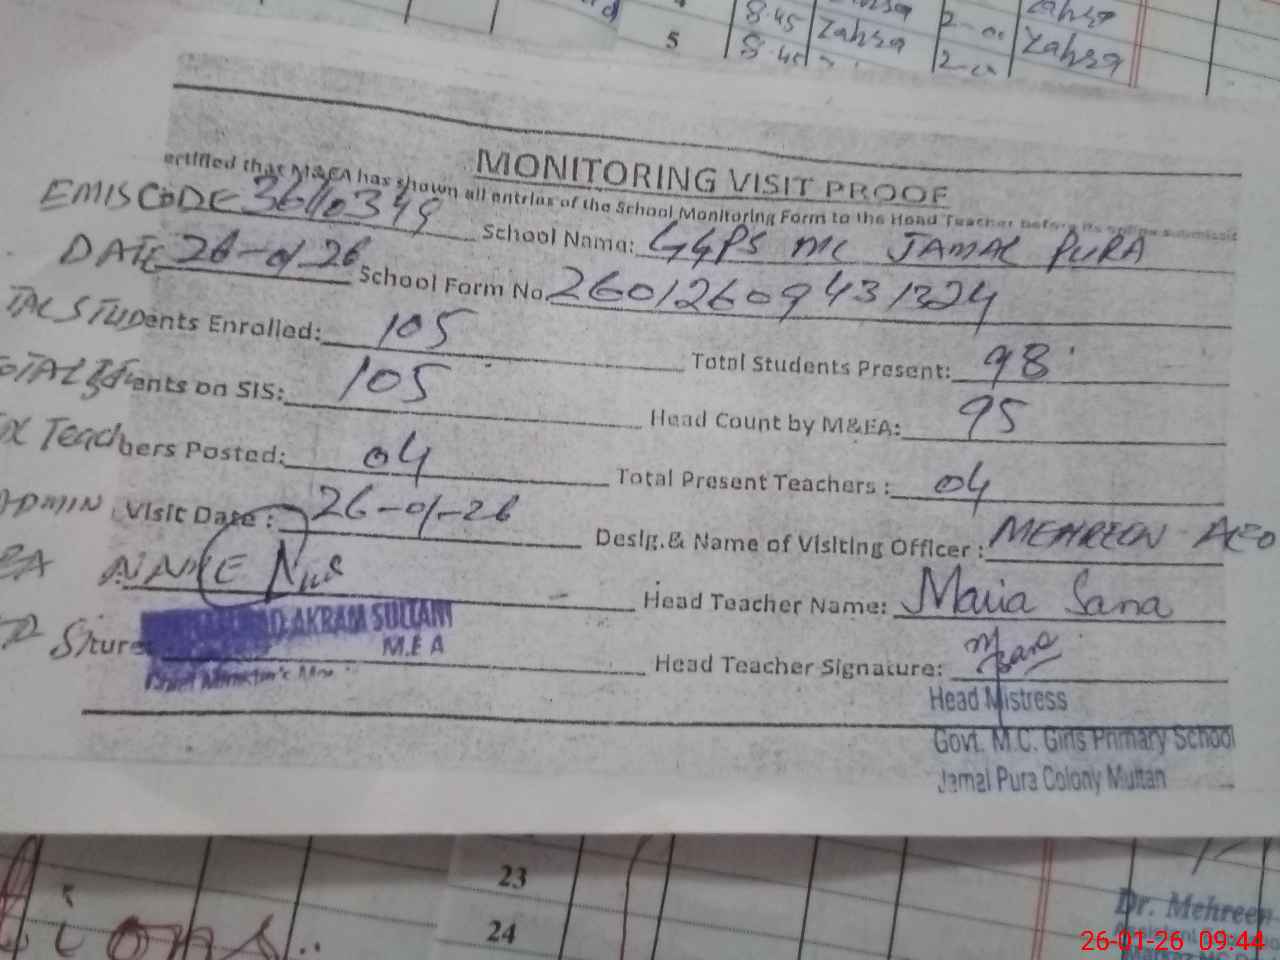 5 8.45 Zahra 2-00 Zahra
8.45
MONITORING VISIT PROOF
ertified that M&EA has shown all entries of the School Monitoring Form to the Head Teacher before its online submissi
EMIS CODE 36110349 School Name: GGPS MC JAMAL PURA
DATE 26-01 26 School Form No. 26012609431324
TAL STUDents Enrolled: 105 Total Students Present: 98
OTAL Students on SIS: 105 Head Count by M&EA: 95
Teachers Posted: 04 Total Present Teachers : 04
ADMIN Visit Date : 26-01-26 Desig.& Name of Visiting Officer : MEHREEN - AEO
EA NAME Head Teacher Name: Maria Sana
ture: AD AKRAM SULTANI Head Teacher Signature:
M.E A
Head Mistress
Govt. M.C. Girls Primary School
Jamal Pura Colony Multan
23
24
tions..
Dr. Mehreen
26-01-26 09:44